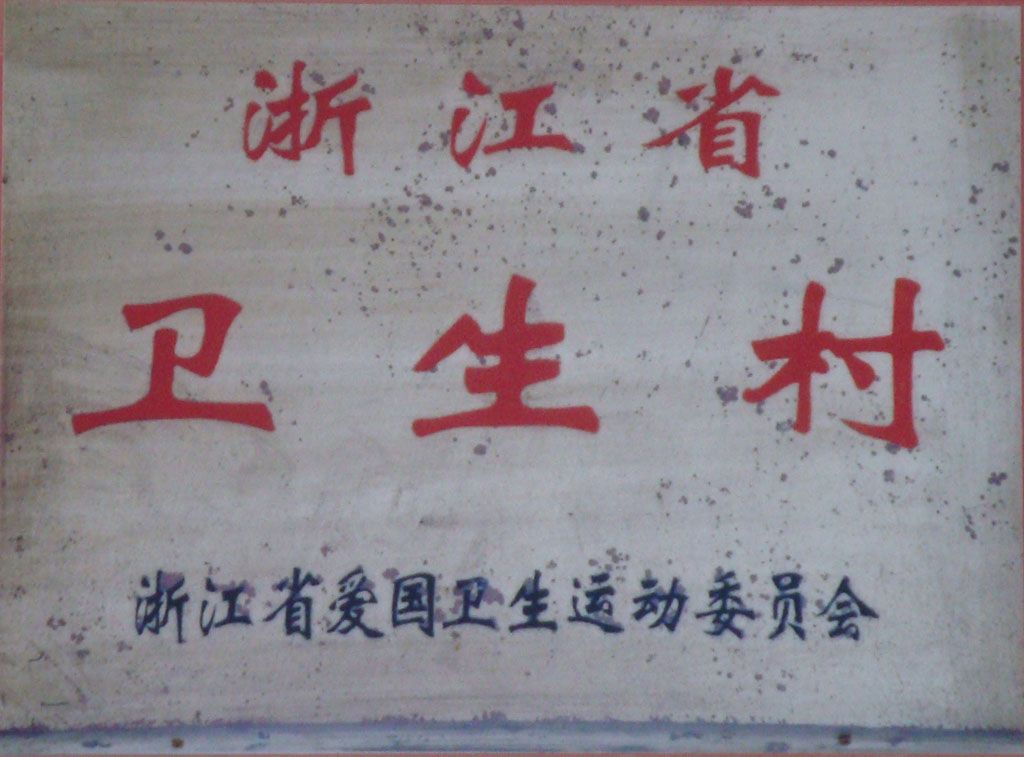 浙江省
卫生村
浙江省爱国卫生运动委员会